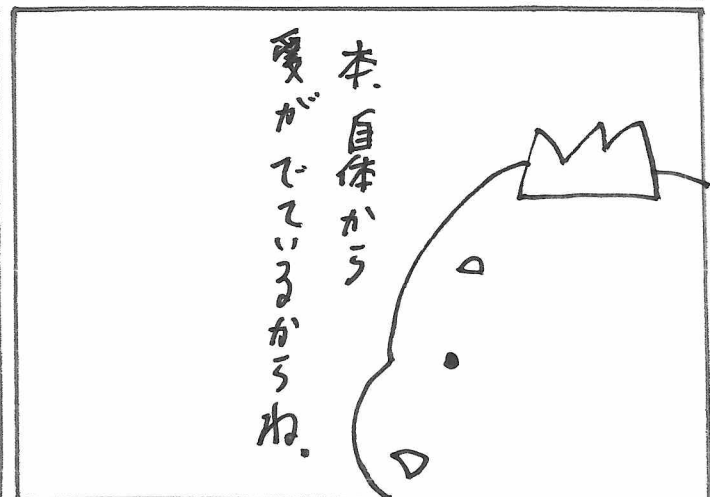 本、自体から
愛がでているからね。